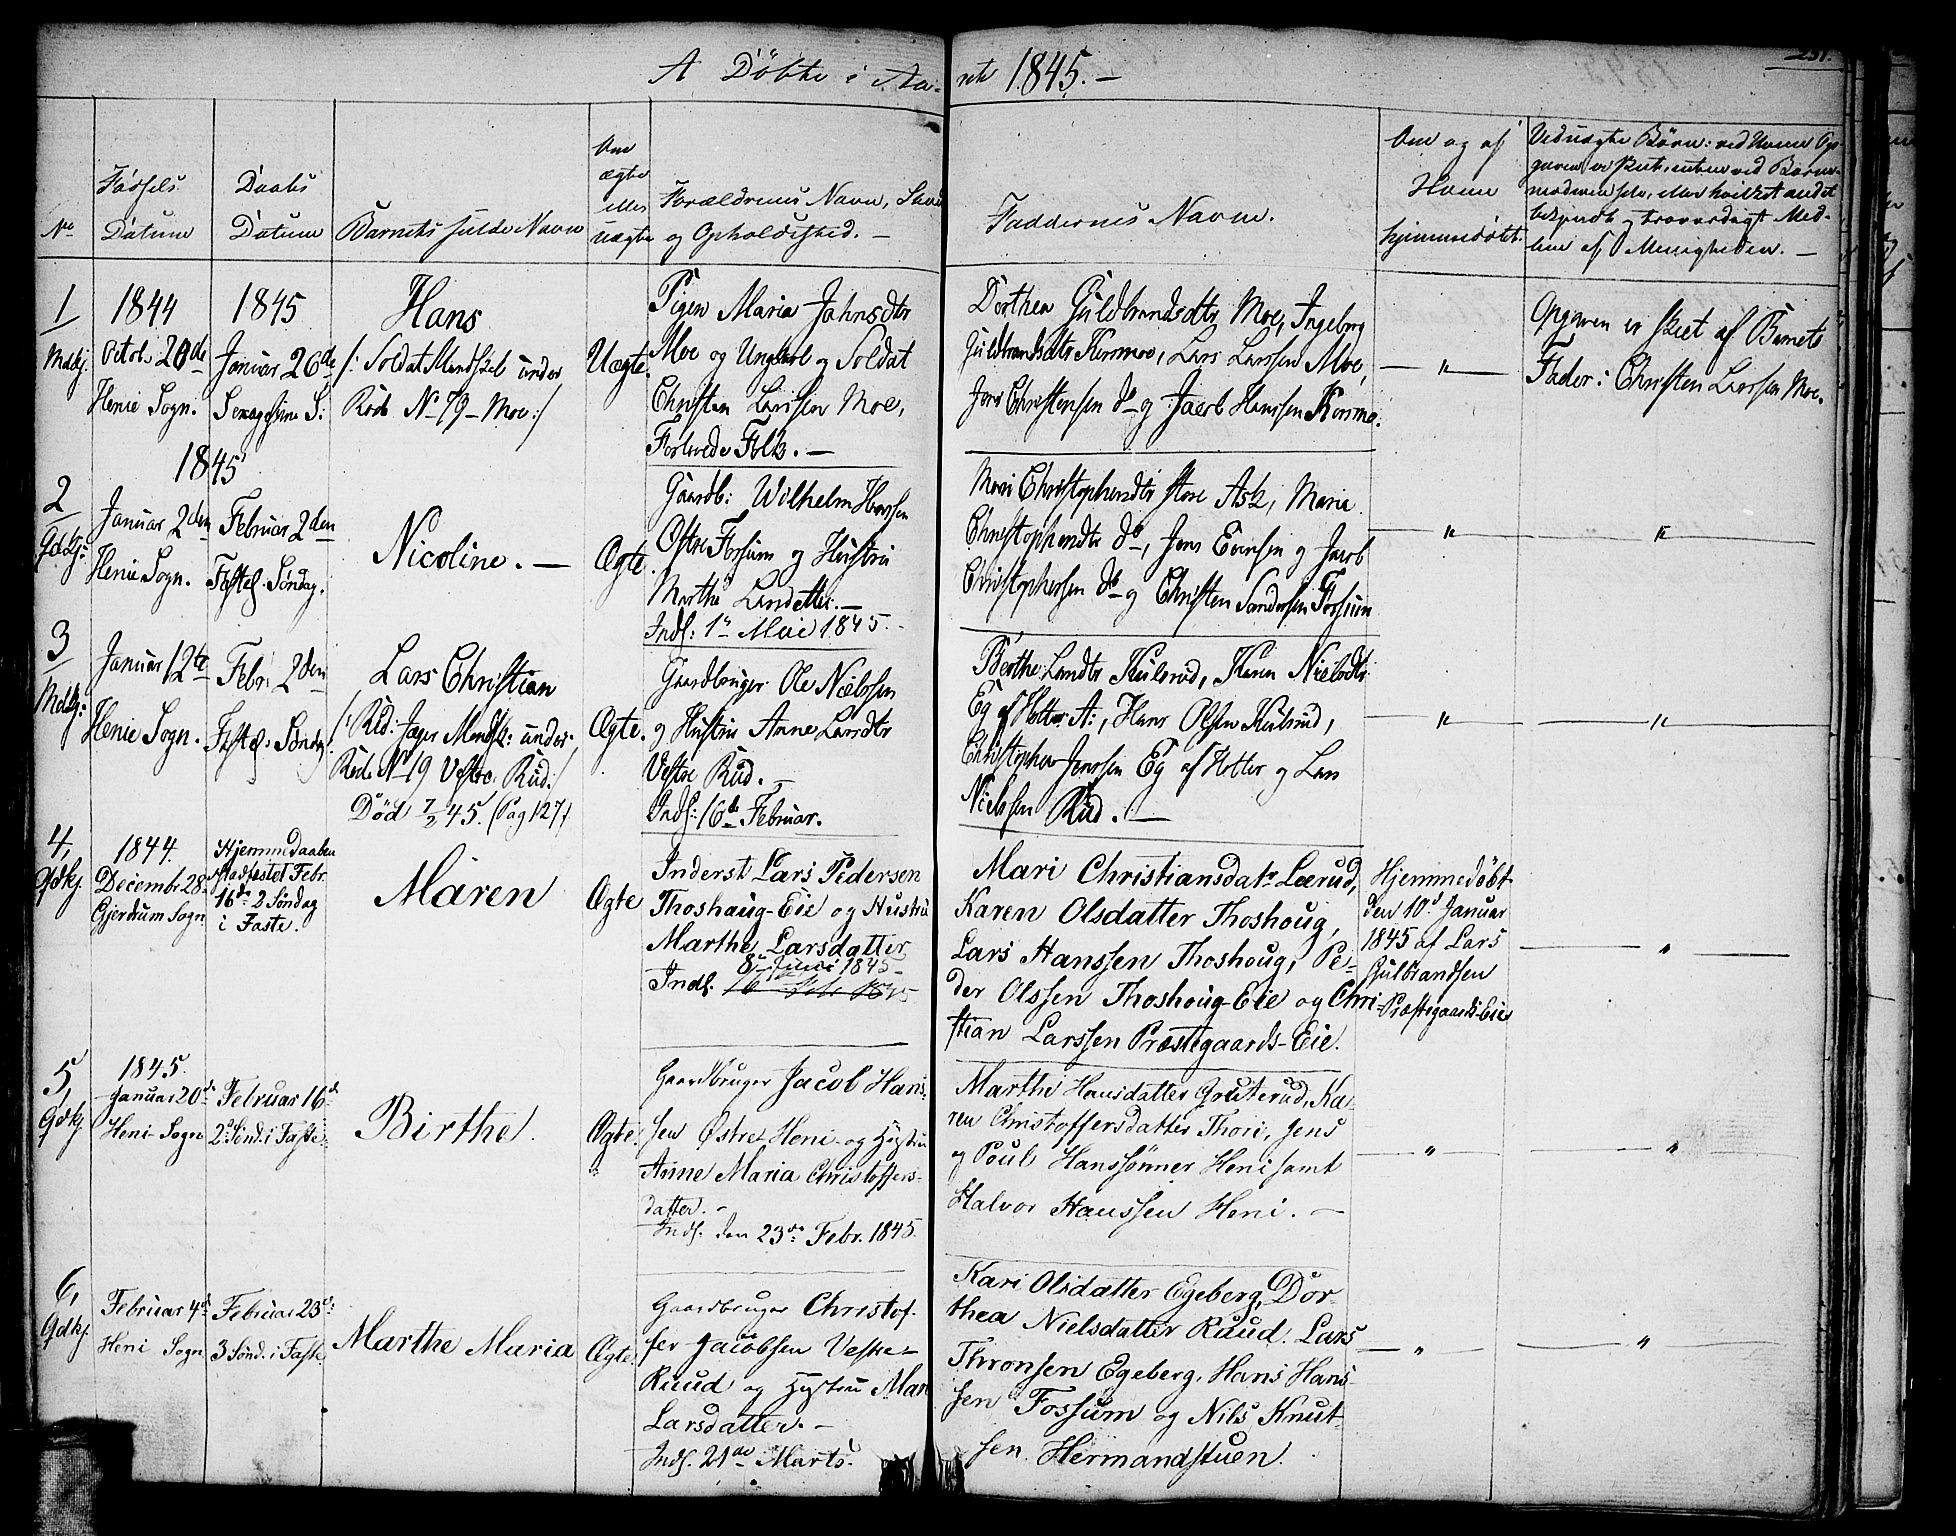 A Døbte i Aa- ret 1845. –
231.
No
Fødsels
Datum
Daabs
Datum
Barnets fulde Navn
Om
ægte
eller
uægte
Forældrenes Navn, Stand
og Opholdssted. –
Faddernes Navne.
Om og af
Hvem
hjemmedøbt.
Ved uægte Børn: ved Hvem Op-
gaven er skeet, enten ved Barne-
moderen selv, eller hvilket andet
bekjendt og troværdigt Med-
lem af Menigheden. –
1
Mdkj.
1844
Octob: 20de
Henie Sogn.
1845
Januar 26de
Sexagesima S:
Hans
/: Soldat Mandskab under
Rode No 79 – Moe :/
Uægte.
Pigen Maria Jahnsdtr
Moe og Ungkarl og Soldat
Christen Larssen Moe,
Forlovede Folk. –
Dorthea Guldbrandsdtr Moe, Ingeborg
Guldbrandsdtr Kormoe, Lars Larssen Moe,
Jens Christensen do og Jacob Hanssen Kormo.
– " –
Opgaven er skeet af Barnets
Fader: Christen Larssen Moe.
1845
2
Qdkj:
Januar 2den
Henie Sogn.
Februar 2den
Fastel: Søndag.
Nicoline. –
Ægte.
Gaardb: Wilhelm Hanssen
Østre Fossum og Hustru
Marthe Larsdatter. –
Indl: 1ste Mai 1845. –
Mari Christophersdtr store Ask, Maria
Christophersdtr do, Jens Evensen og Jacob
Christophersen do og Christen Sandersen Fossum
– " –
"
3
Mdkj:
Januar 12te
Henie Sogn.
Febr: 2den
Fastel: Søndag.
Lars Christian
/: Rid: Jæger Mandsk: under
Rode No 19 Vestre Rud :/
Død 7/2 45. (Pag 127)
Ægte.
Gaardbruger Ole Nielssen
og Hustru Anne Larsdtr
Vestre Rud. –
Indl: 16de Februar.
Berthe Larsdtr Kulsrud, Karen Nielsdtr
Eg af Hotter A:, Hans Olsen Kulsrud,
Christopher Jenssen Eg af Hotter og Lars
Nielssen Rud. –
– " –
"
4,
Qdkj.
1844.
Decembr. 28de
Gjerdrum Sogn
Hjemmedaaben
stadfæstet Febr.
16de 2 Søndag
i Faste.
Maren
Ægte
Inderst Lars Pedersen
Thoshaug-Eie og Hustru
Marthe Larsdatter
8de Juni 1845 –
Indl.
Mari Christiansdatr Lærud,
Karen Olsdatter Thoshoug,
Lars Hanssen Thoshoug, Pe-
der Olssen Thoshoug-Eie og Chri-
stian Larssen Præstegaards-Eie.
Hjemmedøbt
den 10d Januar
1845 af Lars
Gulbrandsen
Præstegaards-Eie
"
5,
Qdkj.
1845.
Januar 20de
Heni Sogn
Februar 16de
2d Sønd. i Faste
Birthe.
Ægte.
Gaardbruger Jacob Hans-
sen Østre Heni og Hustru
Anne Maria Christoffers-
datter. –
Indl. den 23de Febr. 1845.
Marthe Hansdatter Gruterud, Ka-
ren Christoffersdatter Thori, Jens
og Poul Hanssønner Heni samt
Halvor Hanssen Heni. –
– " –
"
6,
Qdkj.
Februar 4de
Heni Sogn
Februar 23de
3 Sønd. i Faste
Marthe Maria
Ægte.
Gaardbruger Christof-
fer Jacobsen Vestre
Ruud og Hustru Mari
Larsdatter. –
Indl. 21de Marts.
Kari Olsdatter Egeberg, Dor-
thea Nielsdatter Ruud. Lars
Thronsen Egeberg, Hans Hans-
sen Fossum og Nils Knut-
sen Hermandstuen.
– " –
"